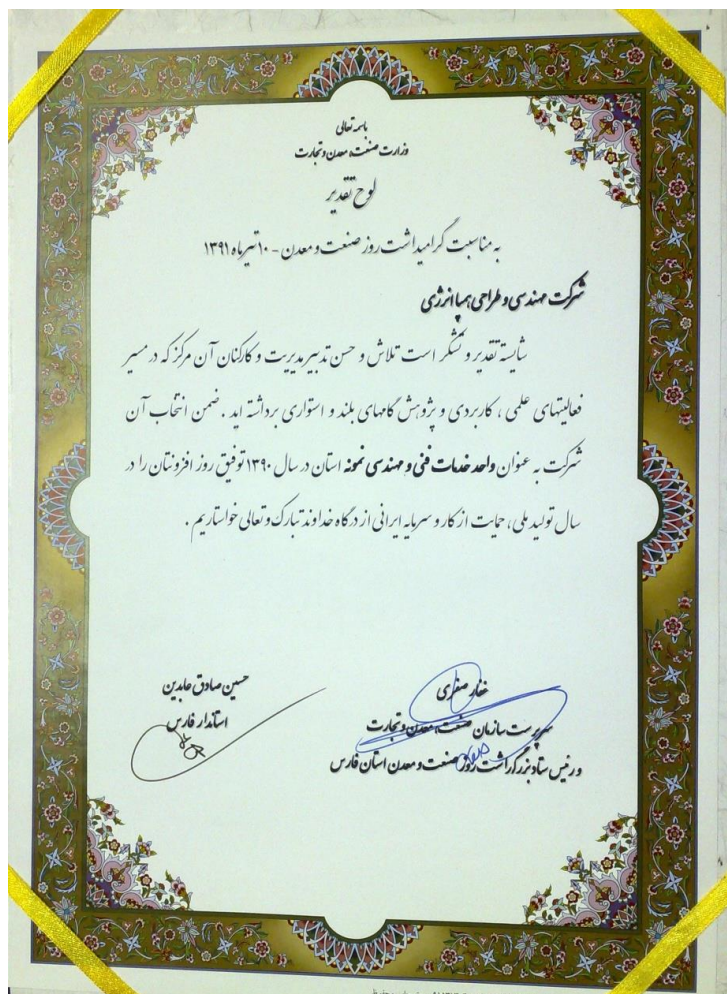 باسمه تعالی
وزارت صنعت، معدن و تجارت
لوح تقدیر
به مناسبت گرامیداشت روز صنعت و معدن - ۱۰ تیرماه ۱۳۹۱
شرکت مهندسی و طراحی همپا انرژی
شایسته تقدیر و تشکر است تلاش و حسن تدبیر مدیریت و کارکنان آن مرکز که در مسیر
فعالیتهای علمی ، کاربردی و پژوهش گامهای بلند و استواری برداشته اید . ضمن انتخاب آن
شرکت به عنوان واحد خدمات فنی و مهندسی نمونه استان در سال ۱۳۹۰ توفیق روز افزونتان را در
سال تولید ملی، حمایت از کار و سرمایه ایرانی از درگاه خداوند تبارک و تعالی خواستاریم .
غفار صفری
سرپرست سازمان صنعت، معدن و تجارت
و رئیس ستاد بزرگداشت روز صنعت و معدن استان فارس
حسین صادق عابدین
استاندار فارس